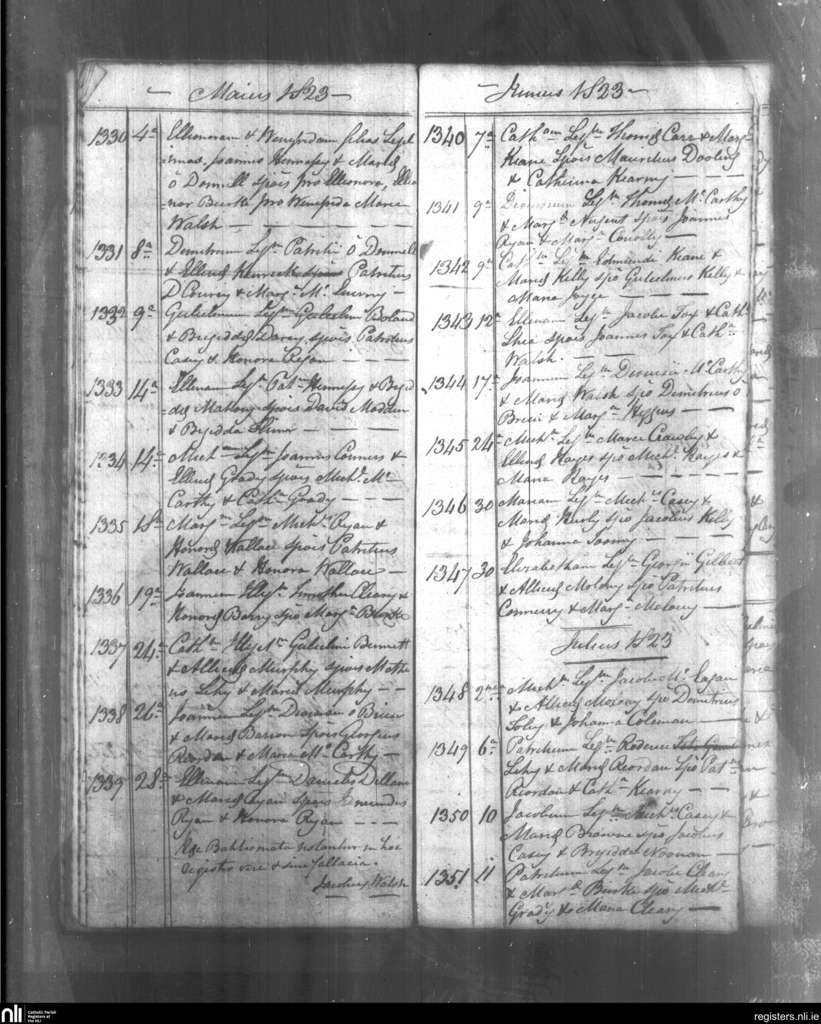 Maius 1823
1330 4a Ellenoram & Wenefridam filias Legit
imas, Joannis Hennesey & Mariæ
ô Donnell spōis pro Ellenora, Elle
nor Burk pro Wenefrida Maria
Walsh
1331 8a Demetrium Legm Patritii ô Donnell
& Ellenæ Patritius
D Courcy & Margt Mc
1332 9a Gulielmum Legm Gulielmi Boland
& Brigiddæ Darcy spōis Patritius
Casey & Honora Ryan
1333 14a Ellenam Legm Patii Hennesey & Brigid
dæ Mallony spōis David Madden
& Brigidda
1334 14a Michm Legm Joannis Connors &
Ellenæ Grady spōis Michl Mc
Carthy & Cathn Grady
1335 18a Margm Legm Michls Ryan &
Honoræ Wallace spōis Patritius
Wallace & Honora Wallace
1336 19a Joannem Legm Timothei Cleary &
Honoræ Barry spō Margt Burke
1337 24a Cathm Illegm Gulielmi Bennett
& Alliciæ Murphy spōis Mathe
us Lehy & Maria Murphy
1338 26a Joannem Legm Dionisii ô Brien
& Mariæ Barron spōis Georgius
& Maria Mc Carthy
1339 28a Ellenam Legm Danielis Dillane
& Mariæ Ryan spōis Edmundus
Ryan & Honora Ryan
Hæc Babtismata notantur in hoc
registro vere & sine fallacia.
Jacobus Walsh
Junius 1823
1340 7a Catham Legm Thomæ Carr & Mary
Keane spōis Mauritius Dooling
& Catherina Kearny
1341 9a Dionisium Legm Thomæ Mc Carthy
& Margtæ Nugent spōis Joannes
Ryan & Margt Conolly
1342 9a Cathm Legm Edmundi Keane &
Mariæ Kelly spō Gulielmus Kelly &
Maria Joyce
1343 12a Ellenam Legm Jacobi Fox & Cathæ
Shea spōis Joannes Fox & Cathn
Walsh.
1344 17a Joannem Legm Dionisii Mc Carthy
& Mariæ Walsh spō Demetrius ô
Brien & Margt Higgins
1345 24a Michm Legm Crawley &
Ellenæ Hayes spō Michl Hayes &
Maria Hayes
1346 30 Mariam Legm Michls Casey &
Mariæ Hurly spō Jacobus Kelly
& Johanna
1347 30 Elizabetham Legm Georgii Gilbert
& Alliciæ Molony spō Patritius
& Margt Molony
Julius 1823
1348 2da Michm Legm Jacobi Mc Eagan
& Alliciæ Molony spō Demetrius
Foley & Johanna Coleman
1349 6a Patritium Legm Roderici
Lehy & Mariæ Reordan spō Pats
Reordan & Cathn Kearny
1350 10 Jacobum Legm Michls Casey &
Mariæ Browne spō Jacobus
Casey & Brigidda Noonan
1351 11 Patritium Legm Jacobi Cleary
& Margtæ Burke spō Michl
Grady & Maria Cleary
nli Catholic Parish
Registers at
the NLI
registers.nli.ie